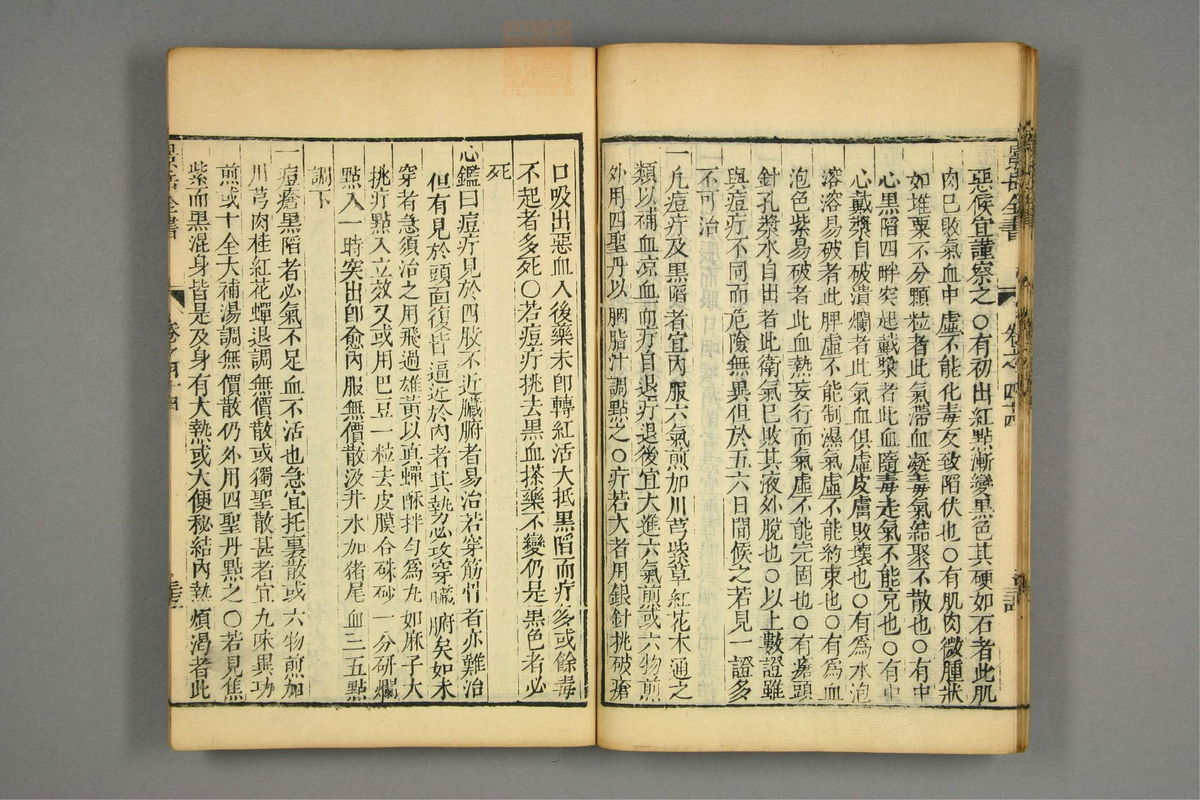 惡候宜謹察之○有初出紅點漸變黑色其硬如石者此肌
肉已敗氣血中虛不能化毒反致陷伏也○有肌肉微腫狀
如堆粟不分顆粒者此氣滯血凝毒氣結聚不散也○有中
心黑陷四畔突起戴漿者此血隨毒走氣不能克也○有中
心戴漿自破潰爛者此氣血俱虛皮膚敗壞也○有爲水泡
溶溶易破者此脾虛不能制濕氣虛不能約束也○有爲血
泡色紫易破者此血熱妄行而氣虛不能完固也○有瘡頭
針孔漿水自出者此衛氣已敗其液外脫也○以上數證雖
與痘疔不同而危險無異但於五六日間候之若見一證多
不可治
一凡痘疔及黑陷者宜內服六氣煎加川芎紫草紅花木通之
類以補血凉血而疔自退疔退後宜大進六氣煎或六物煎
外用四聖丹以胭脂汁調點之○疔若大者用銀針挑破瘡
景岳全書 卷之四十四
口吸出惡血入後藥未卽轉紅活大抵黑陷而疔多或餘毒
不起者多死○若痘疔挑去黑血搽藥不變仍是黑色者必
死
心鑑曰痘疔見於四肢不近臟腑者易治若穿筋骨者亦難治
但有見於頭面復皆逼近於內者其勢必攻穿臟腑矣如未
穿者急須治之用飛過雄黃以眞蟬酥拌勻爲丸如麻子大
挑疔點入立效又或用巴豆一粒去皮膜合硃砂一分研爛
點入一時突出卽愈內服無價散汲井水加猪尾血三五點
調下
一痘瘡黑陷者必氣不足血不活也急宜托裏散或六物煎加
川芎肉桂紅花蟬退調無價散或獨聖散甚者宜九味異功
煎或十全大補湯調無價散仍外用四聖丹點之○若見焦
紫而黑混身皆是及身有大熱或大便秘結內熱煩渴者此
景岳全書 卷之四十四